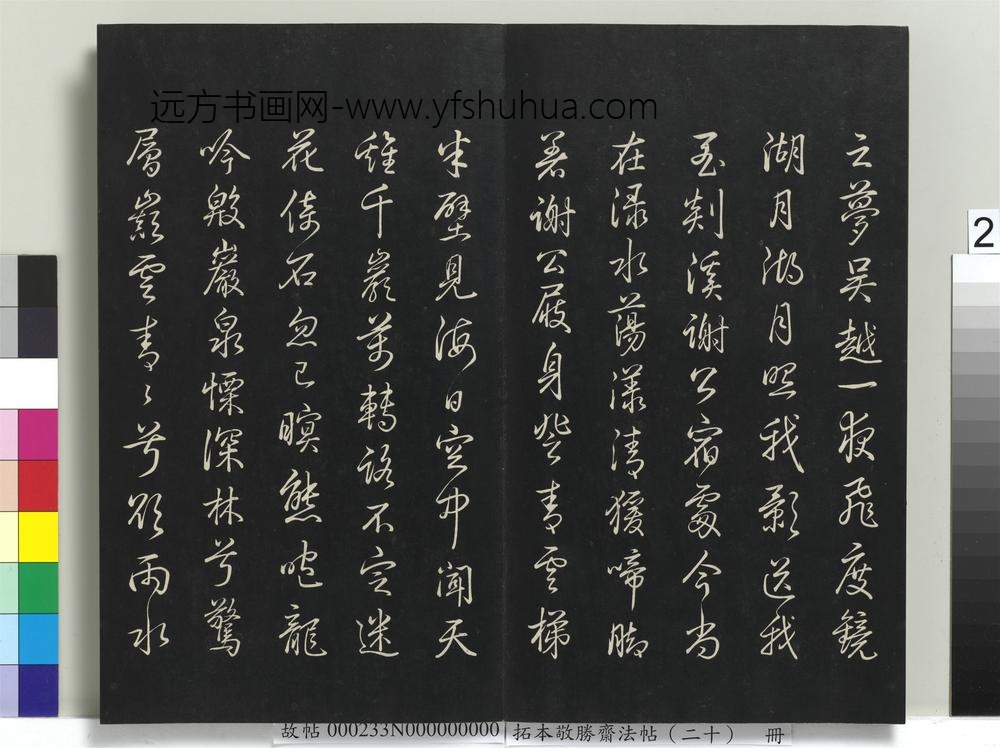 远方书画网-www.yfshuhua.com
之夢吳越一夜飛度鏡
湖月湖月照我影送我
至剡溪謝公宿處今尚
在淥水蕩漾清猨啼腳
著謝公屐身登青雲梯
半壁見海日空中聞天
雞千巖萬轉路不定迷
花倚石忽已暝熊咆龍
吟殷巖泉慄深林兮驚
層巔雲青々兮欲雨水
2
故帖 000233N000000000 拓本敬勝齋法帖（二十） 冊